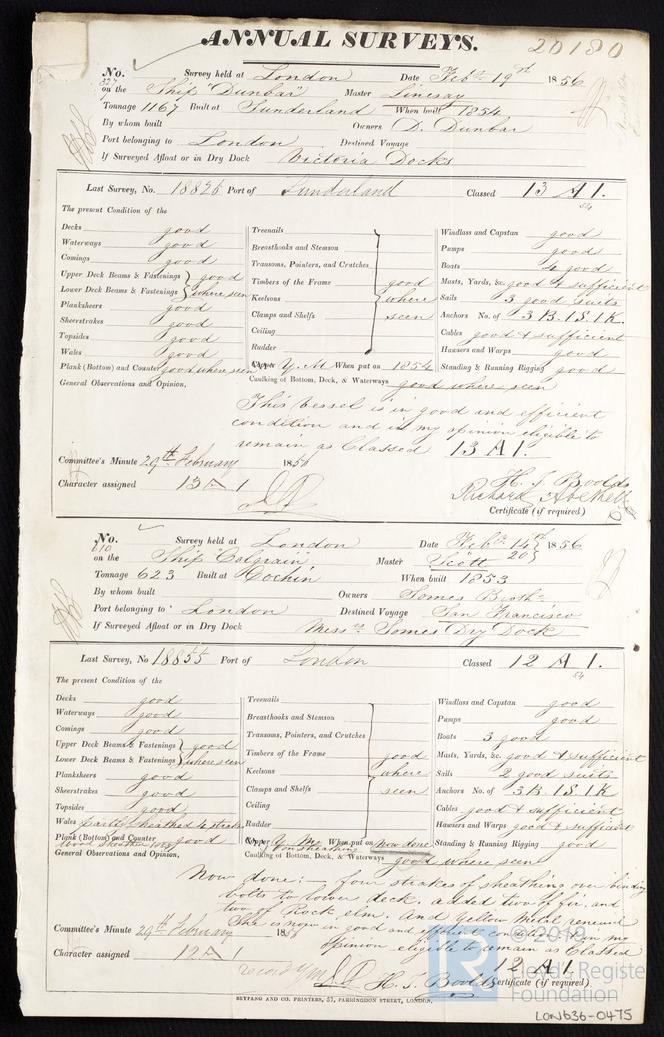 ANNUAL SURVEYS. 20180
No. 327 Survey held at London Date Feby 19th 1856
on the Ship "Dunbar" Master Linesay
Tonnage 1167 Built at Sunderland When built 1854
By whom built Owners D. Dunbar
Port belonging to London Destined Voyage
If Surveyed Afloat or in Dry Dock Victoria Docks
Last Survey, No. 18826 Port of Sunderland Classed 13 A 1.
54
The present Condition of the
Decks good
Waterways good
Comings good
Upper Deck Beams & Fastenings } good
Lower Deck Beams & Fastenings } where seen
Planksheers good
Sheerstrakes good
Topsides good
Wales good
Plank (Bottom) and Counter good where seen
General Observations and Opinion,
Treenails
Breasthooks and Stemson
Transoms, Pointers, and Crutches
Timbers of the Frame good
Keelsons where
Clamps and Shelfs seen
Ceiling
Rudder
Y. M When put on 1854
Caulking of Bottom, Deck, & Waterways good where seen
Windlass and Capstan good
Pumps good
Boats 4 good
Masts, Yards, &c. good & sufficient
Sails 3 good suits
Anchors No. of 3 B. 1 S. 1 K.
Cables good & sufficient
Hawsers and Warps good
Standing & Running Rigging good
This vessel is in good and efficient
condition and in my opinion eligible to
remain as Classed 13 A 1.
Committee's Minute 29th February 1856
Character assigned 13 A 1
H. J. Boolds
Richard
Certificate (if required)
No. 610 Survey held at London Date Feby 14th 20 } 1856
on the Ship "Colgrain" Master Scott
Tonnage 623 Built at Cochin When built 1853
By whom built Owners Somes Broths
Port belonging to London Destined Voyage San Francisco
If Surveyed Afloat or in Dry Dock Messrs Somes Dry Dock
Last Survey, No 18855 Port of London Classed 12 A 1.
54
The present Condition of the
Decks good
Waterways good
Comings good
Upper Deck Beams & Fastenings } good
Lower Deck Beams & Fastenings } where seen
Planksheers good
Sheerstrakes good
Topsides good
Wales sheathed 4 strakes
Plank (Bottom) and Counter good
Wood Sheathed
General Observations and Opinion,
Treenails
Breasthooks and Stemson
Transoms, Pointers, and Crutches
Timbers of the Frame good
Keelsons where
Clamps and Shelfs seen
Ceiling
Rudder
Y. M. When put on now done
on sheathing
Caulking of Bottom, Deck, & Waterways good where seen
Windlass and Capstan good
Pumps good
Boats 3 good
Masts, Yards, &c. good & sufficient
Sails 2 good suits
Anchors No. of 3 B. 1 S. 1 K
Cables good & sufficient
Hawsers and Warps good & sufficient
Standing & Running Rigging good
Now done:— four strakes of sheathing over binding
bolts to lower deck. added two of fir. and
two of Rock elm. and Yellow Metal renewed
She is now in good and efficient condition & in my
opinion eligible to remain as Classed
12 A 1.
Committee's Minute 29th February 1856
Character assigned 12 A 1
H. J. Boolds Certificate (if required)
BEYFANG AND CO. PRINTERS, 57, FARRINGDON STREET, LONDON.
© 2019
Lloyd's Register
Foundation
LON636-0475